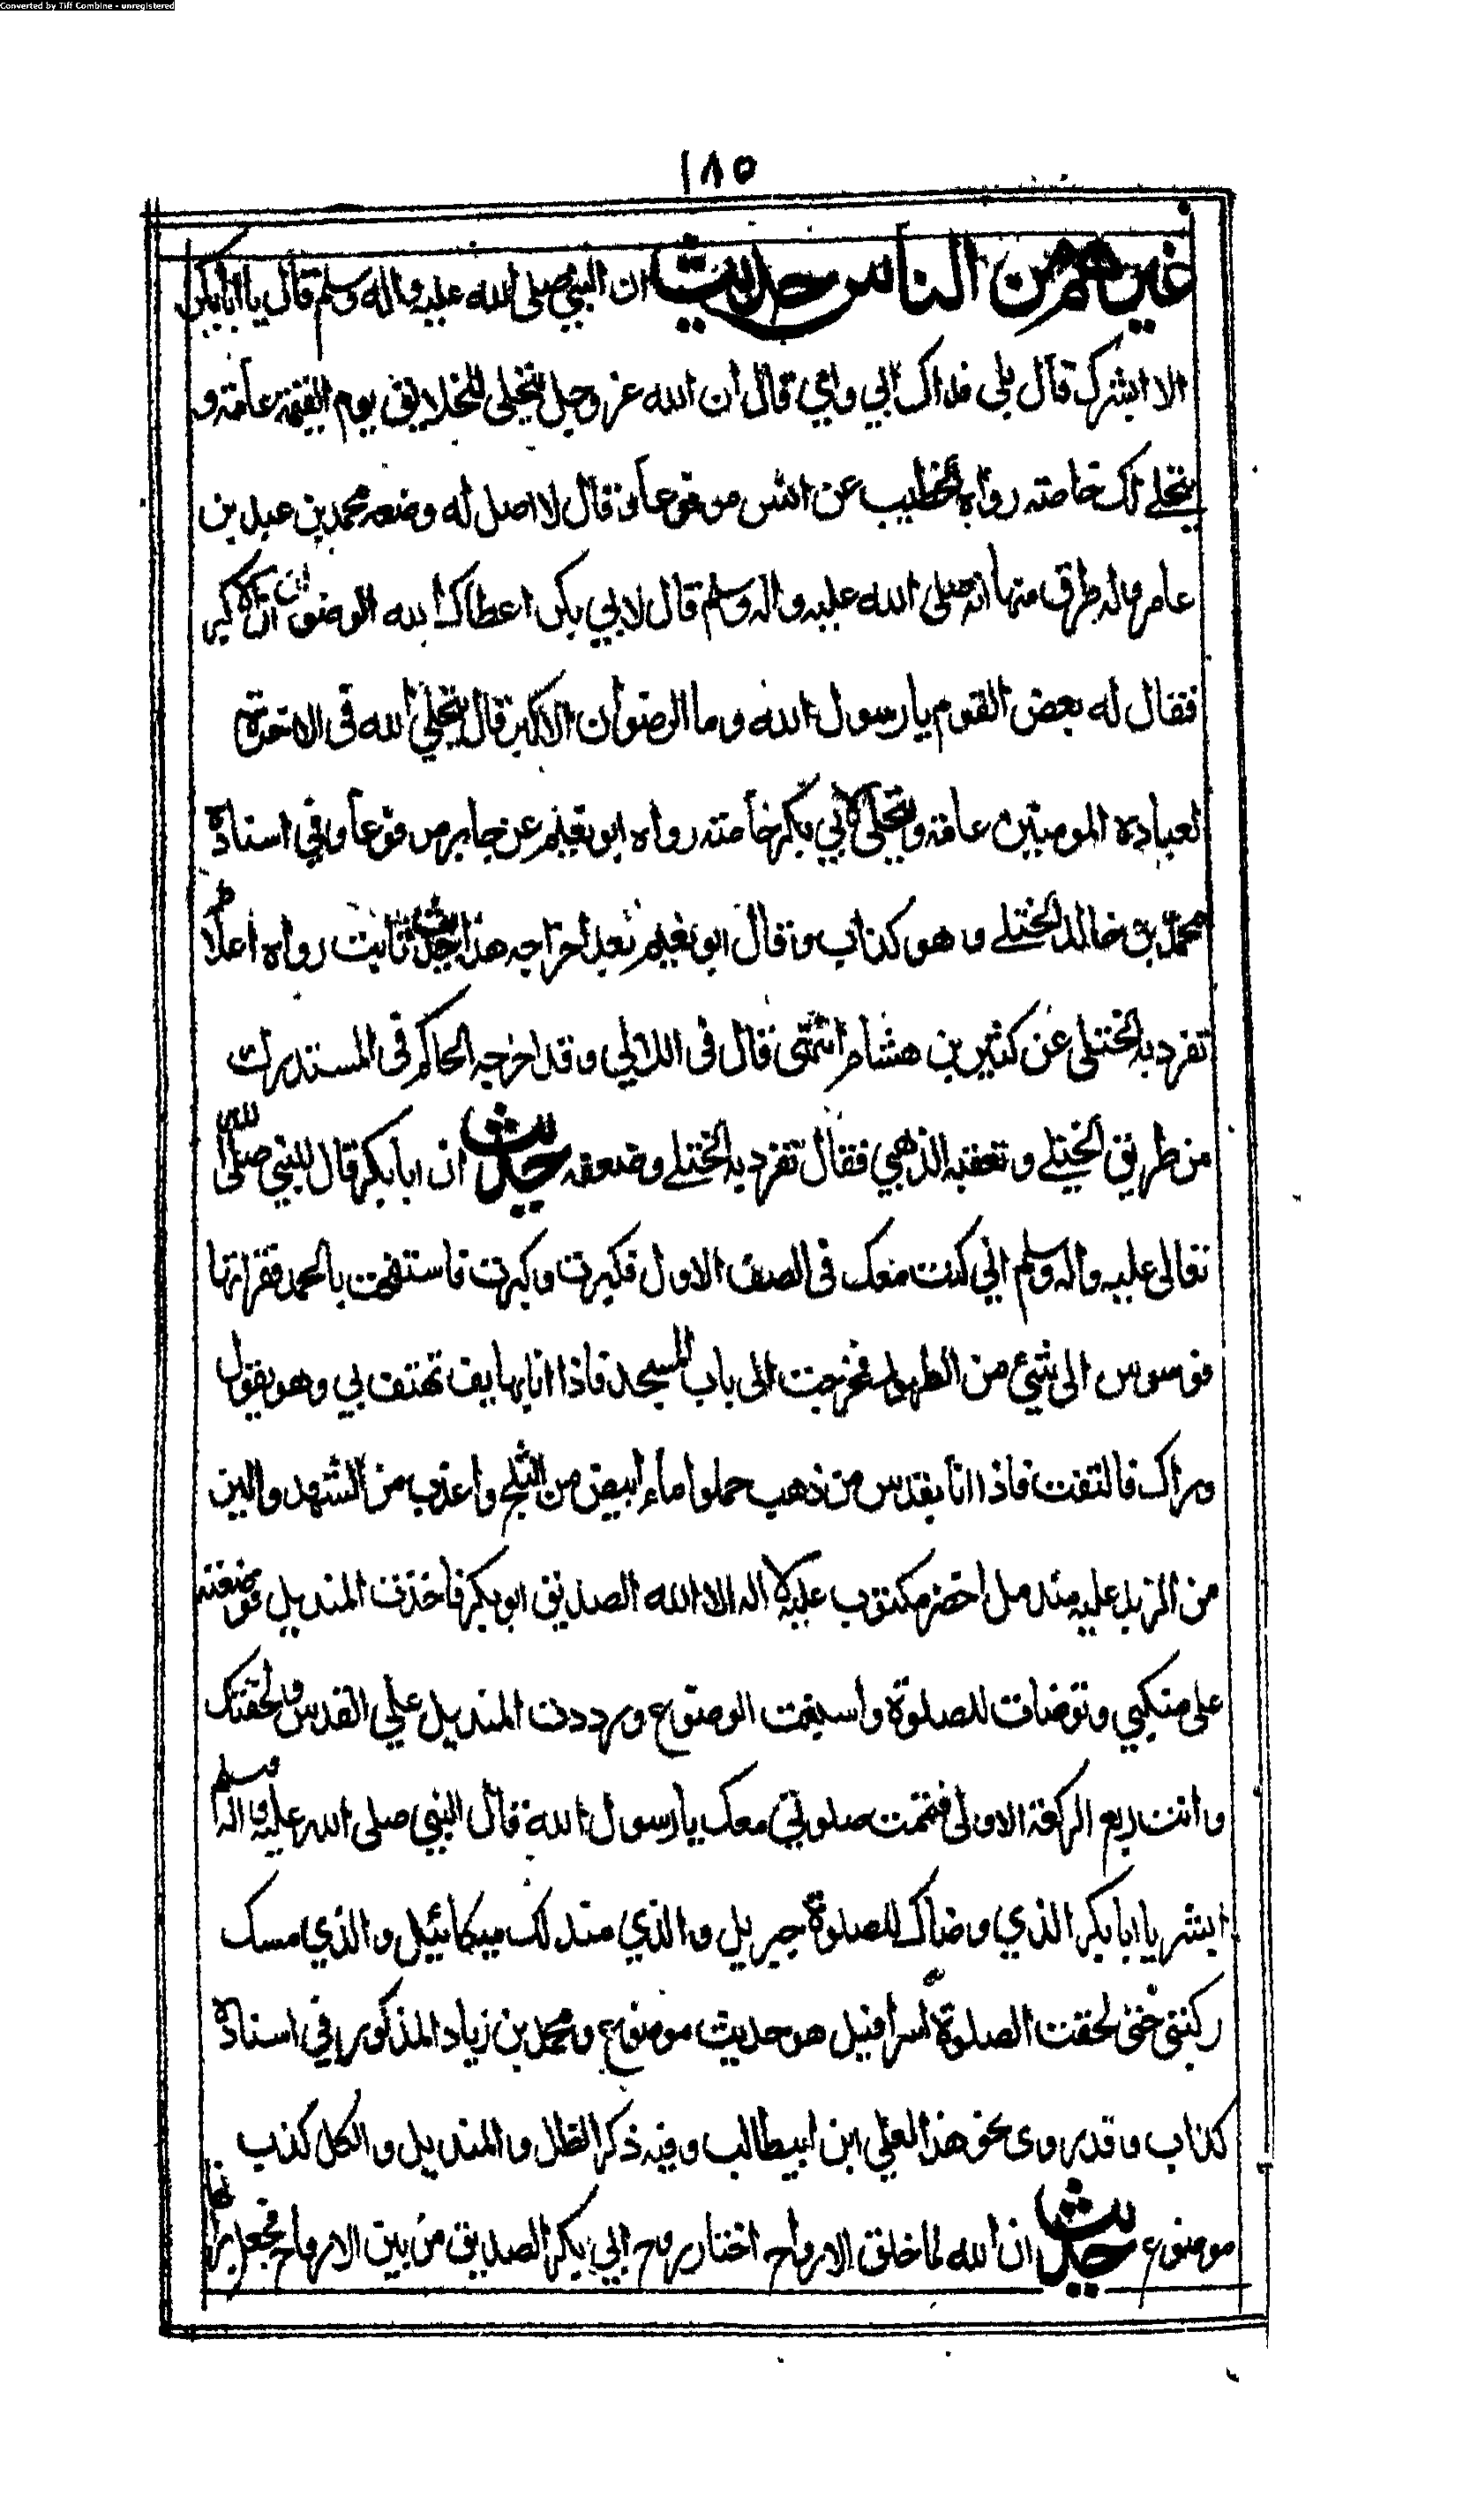 Converted by Tiff Combine - unregistered
١٨٥
غيرهم من الناس حديث ان النبي صلى الله عليه واله وسلم قال يا ابا بكر
الا ابشرك قال بلى فداك ابي وامي قال ان الله عز وجل يتجلى للخلايق يوم القيمة عامة و
يتجلے لك خاصة رواه الخطيب عن انس مرفوعا وقال لا اصل له وضعه محمد بن عبد بن
عامر وله طرق منها انه صلى الله عليه واله وسلم قال لابي بكر اعطاك الله الرضوان الاكبر
فقال له بعض القوم يا رسول الله وما الرضوان الاكبر قال يتجلى الله فى الاخرة
لعباده المومنين عامة ويتجلى لابي بكر خاصة رواه ابو نعيم عن جابر مرفوعا وفي اسناده
محمد بن خالد الختلے وهو كذاب وقال ابو نعيم بعد اخراجه هذا حديث ثابت رواه اعلام
تفرد به الختلى عن كثير بن هشام انتهى قال فى اللالي وقد اخرجه الحاكم فى المستدرك
من طريق الختلے وتعقبه الذهبي فقال تفرد به الختلے وضعفه حديث ان ابا بكر قال للنبي صلى الله
تعالى عليه واله وسلم اني كنت معك فى الصف الاول فكبرت وكبرت فاستفتحت بالحمد فقراتها
فوسوس الى شئ من الطهور فخرجت الى باب المسجد فاذا انا بهايف تهتف بي وهو يقول
وراك فالتفت فاذا انا بقدس من ذهب حملوا ماء ابيض من الثلج واعذب من الشهد والين
من الزبد عليه مندمل اخضر مكتوب عليه لا اله الا الله الصديق ابو بكر فاخذت المنديل فوضعته
على منكبي وتوضات للصلوة واسبغت الوضوء ورددت المنديل علي القدس ولحقتك
وانت ربع الركعة الاولى فتممت صلوتي معك يا رسول الله قال النبي صلى الله عليه واله وسلم
ابشر يا ابا بكر الذي وضاك للصلوة جبريل والذي مندلك ميكائيل والذي مسك
ركبتى حتى لحقت الصلوة اسرافيل هو حديث موضوع ومحمد بن زياد المذكور في اسناده
كذاب وقد روى نحو هذا لعلي ابن ابيطالب وفيه ذكر الظل والمنديل والكل كذب
موضوع حديث ان الله لما خلق الارواح اختار روح ابي بكر الصديق من بين الارواح فجعل